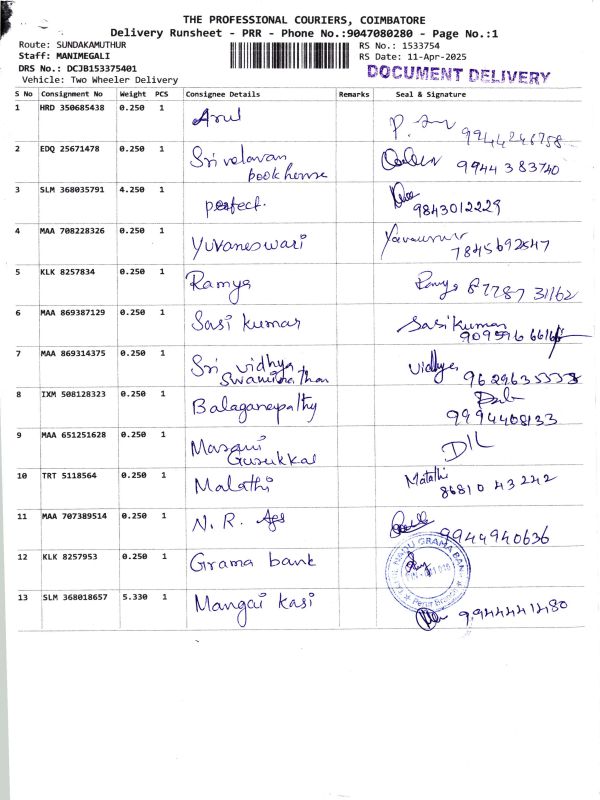 THE PROFESSIONAL COURIERS, COIMBATORE
Delivery Runsheet - PRR - Phone No.:9047080280 - Page No.:1
Route: SUNDAKAMUTHUR
RS No.: 1533754
Staff: MANIMEGALI
RS Date: 11-Apr-2025
DRS No.: DCJB153375401
DOCUMENT DELIVERY
Vehicle: Two Wheeler Delivery
S No Consignment No Weight PCS Consignee Details Remarks Seal & Signature
1 HRD 350685438 0.250 1 Arul
9944246758
2 EDQ 25671478 0.250 1 Sri velavan
book house
9944 383740
3 SLM 368035791 4.250 1 perfect.
9843012229
4 MAA 708228326 0.250 1 Yuvaneswari
7845692547
5 KLK 8257834 0.250 1 Ramya
Ramya 87787 31162
6 MAA 869387129 0.250 1 Sasi kumar
Sasikumar
7 MAA 869314375 0.250 1 Sri vidhya
Swaminathan
Vidhya
8 IXM 508128323 0.250 1 Balaganapathy
9994408133
9 MAA 651251628 0.250 1 Masani
Gurukkal
D/L
10 TRT 5118564 0.250 1 Malathi
Malathi
86810 43242
11 MAA 707389514 0.250 1 N. R. Ags
9944940636
12 KLK 8257953 0.250 1 Grama bank
NADU GRAMA BANK
13 SLM 368018657 5.330 1 Mangai Kasi
9944441480